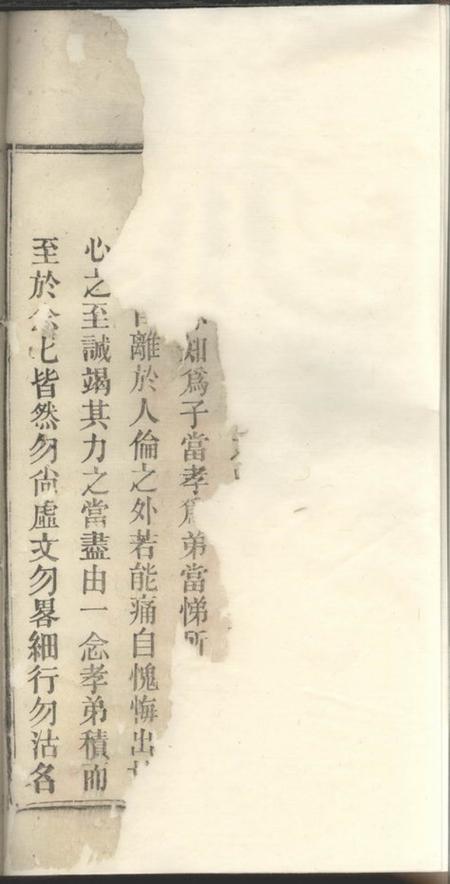 知爲子當孝爲弟當悌所
離於人倫之外若能痛自愧悔出
心之至誠竭其力之當盡由一念孝弟積而
至於念匕皆然勿尚虛文勿畧細行勿沽名